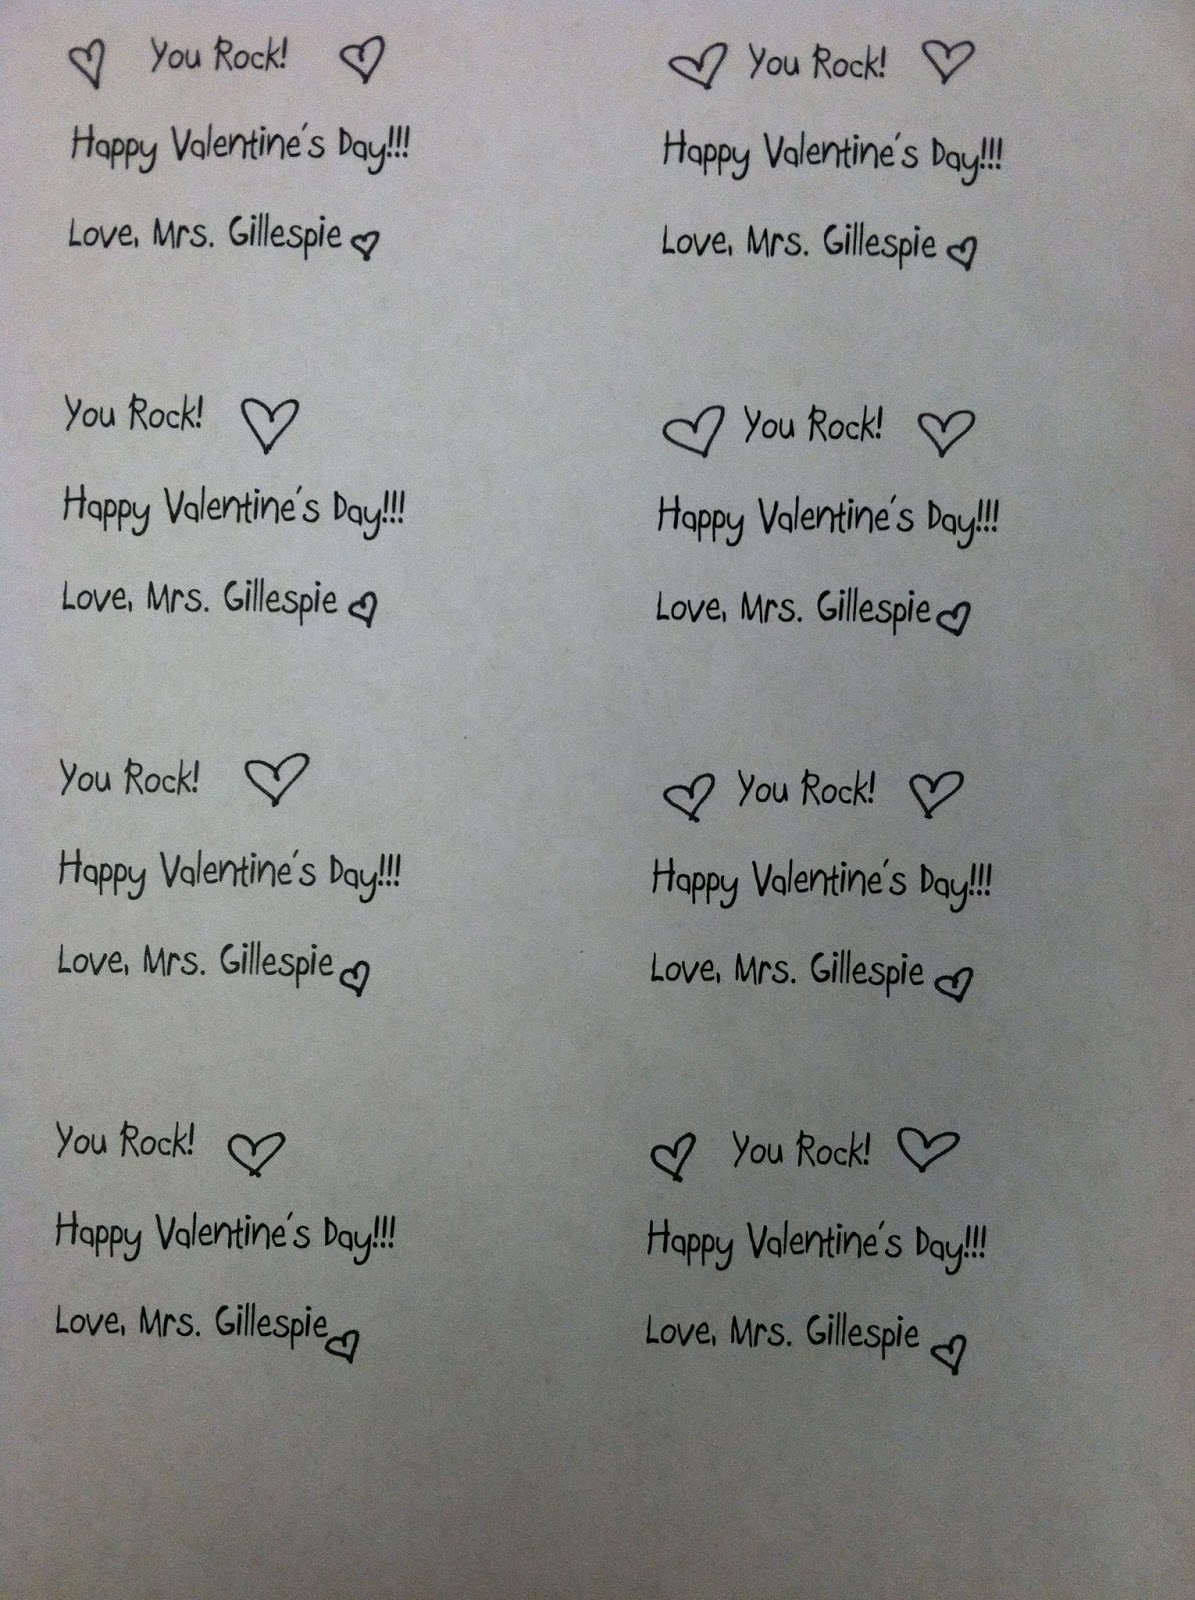 You Rock!
Happy Valentine's Day!!!
Love, Mrs. Gillespie
You Rock!
Happy Valentine's Day!!!
Love, Mrs. Gillespie
You Rock!
Happy Valentine's Day!!!
Love, Mrs. Gillespie
You Rock!
Happy Valentine's Day!!!
Love, Mrs. Gillespie
You Rock!
Happy Valentine's Day!!!
Love, Mrs. Gillespie
You Rock!
Happy Valentine's Day!!!
Love, Mrs. Gillespie
You Rock!
Happy Valentine's Day!!!
Love, Mrs. Gillespie
You Rock!
Happy Valentine's Day!!!
Love, Mrs. Gillespie